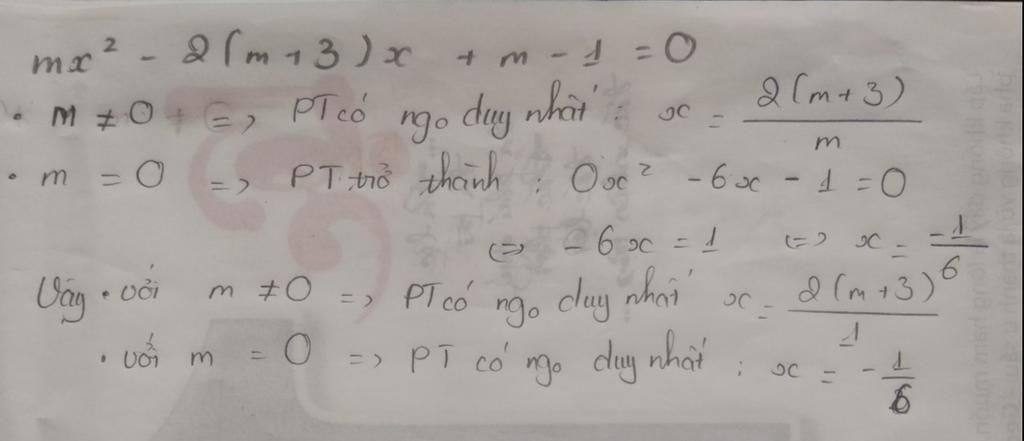 mx² - 2(m+3)x + m - 1 = 0
• m ≠ 0 => PT có ngo duy nhất : x = 2(m+3)/m
• m = 0 => PT trở thành : 0x² - 6x - 1 = 0
<=> - 6x = 1 <=> x = -1/6
Vậy • với m ≠ 0 => PT có ngo duy nhất x = 2(m+3)/1
• với m = 0 => PT có ngo duy nhất : x = - 1/6